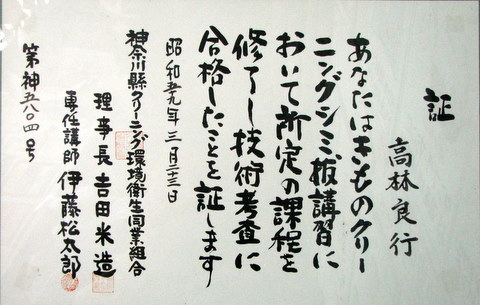 証
高林良行
あなたはきものクリー
ニングシミ抜講習に
おいて所定の課程を
修了し技術考査に
合格したことを証します
昭和五九年三月二十三日
神奈川縣クリーニング環境衛生同業組合
理事長吉田米造
専任講師伊藤松太郎
第神五八〇四号